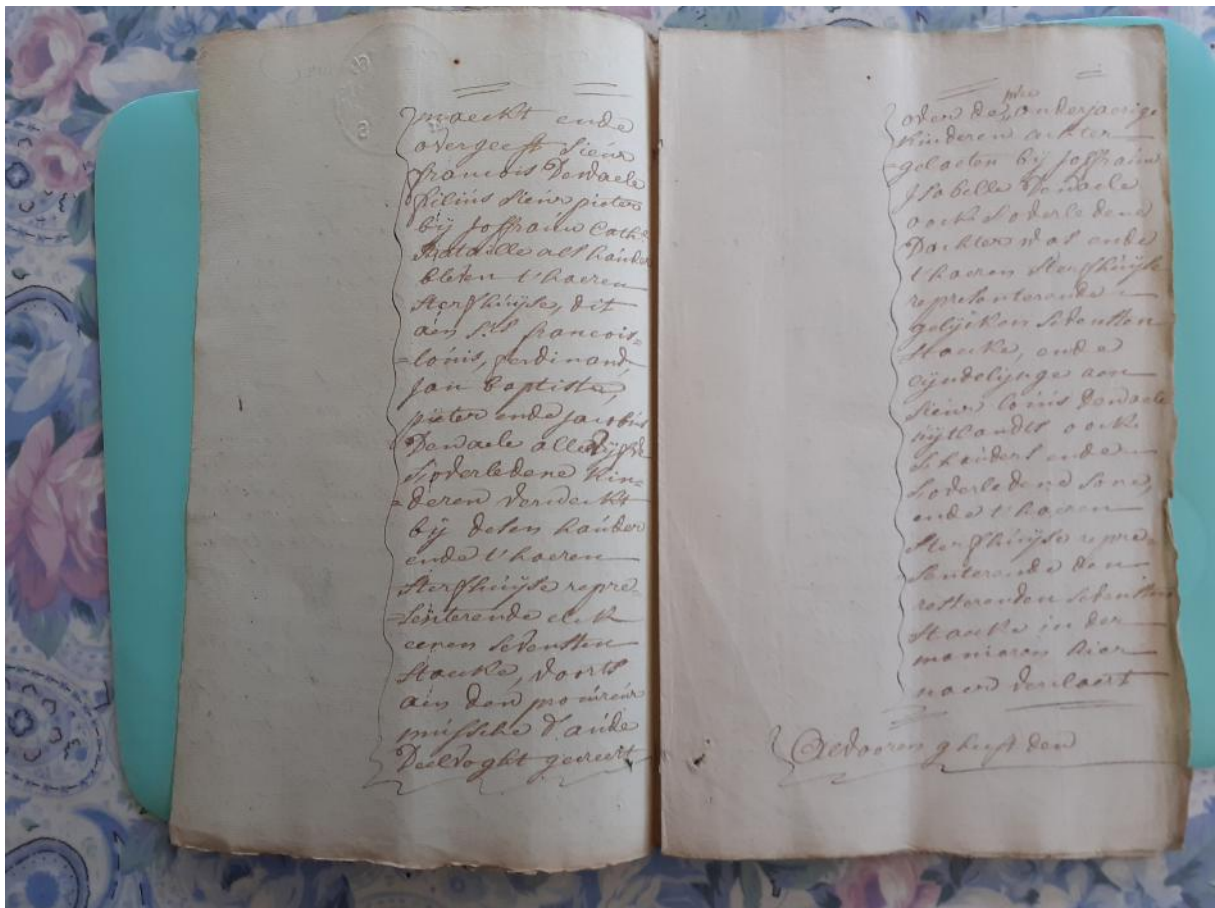 maeckt ende
overgeeft Sieur
francois Dewaele
filius Sieur pieter
bij Joffrauw Cath.
Bataille als hauder
bleven t'haeren
sterfhuijse, dit
aen Srs francois=
=louis, ferdinand,
jan baptiste,
pieter ende jacobus
Dewaele alle vijfve
s'overledene kin=
=deren verweckt
bij desen hauder
ende t'haeren
sterfhuijse repre=
=senterende elck
eenen seventhen
staecke, voorts
aen den procureur
d'aude
Deelvoght gecreert
over de onderjaerige
kinderen achter=
=gelaeten bij Joffrauw
Isabelle Dewaele
oock s'overledene
Dochter was ende
t'haeren sterfhuijse
representerende
gelijcken seventhen
staecke, ende
eijndelijnge aen
Sieur louis Dewaele
uijtlandts oock
s'hauders ende
s'overledene sone,
ende t'haeren
sterfhuijse repre=
senterende den
resterenden seventhen
staecke in der
manieren hier
naer verclaert
Gevooren gheeft den